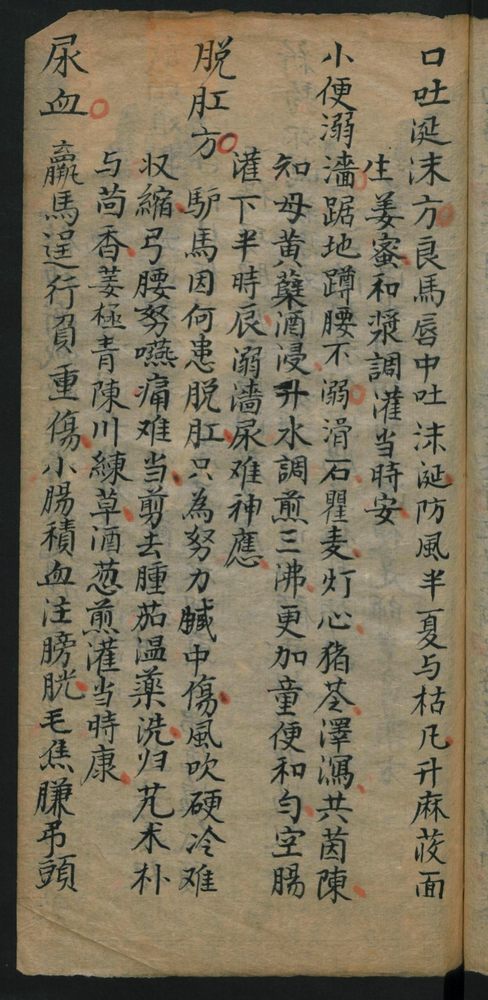 口吐涎沫方良馬唇中吐沫涎防風半夏与枯凡升麻莈面
生姜蜜和漿調灌当時安
小便溺濇踞地蹲腰不溺滑石瞿麦灯心猪苓澤瀉共茵陳
知母黄蘗酒浸升水調煎三沸更加童便和匀空腸
灌下半時辰溺濇尿难神應
脱肛方驴馬因何患脱肛只為努力臟中傷風吹硬冷难
収縮弓腰努嚥痛难当剪去腫茄温薬洗归芃术朴
与茴香姜極青陳川練草酒葱煎灌当時康
尿血羸馬逞行負重傷小腸積血注膀胱毛焦膁吊頭